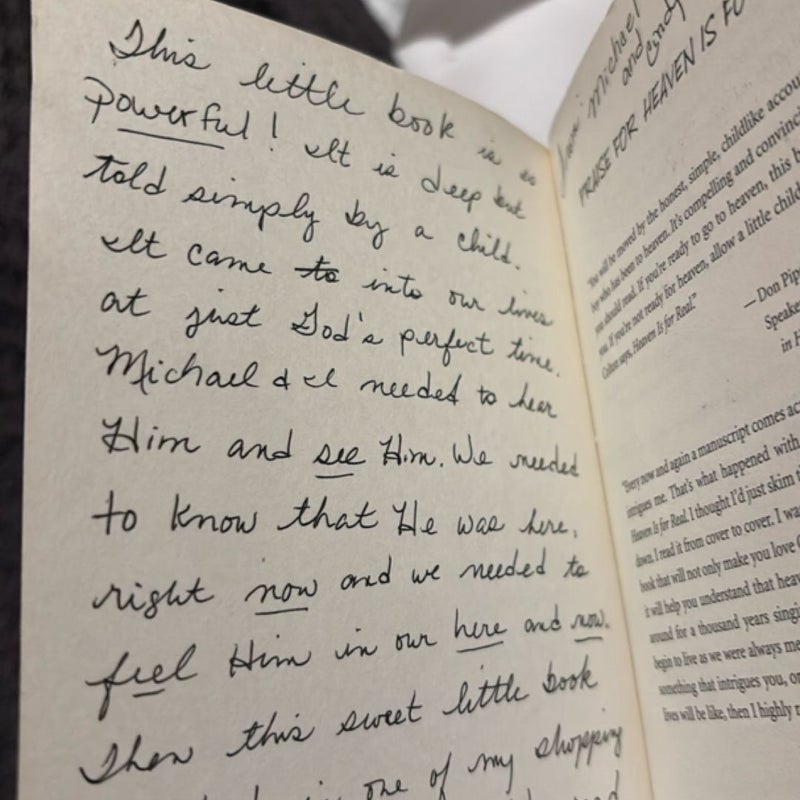 This little book is so
powerful! It is deep but
told simply by a child.
It came to into our lives
at just God's perfect time.
Michael & I needed to hear
Him and see Him. We needed
to know that He was here,
right now and we needed to
feel Him in our here and now.
Then this sweet little book
in one of my shopping
Michael
and Cindy
PRAISE FOR HEAVEN IS FO
"You will be moved by the honest, simple, childlike accou
boy who has been to heaven. It's compelling and convinci
you should read. If you're ready to go to heaven, this b
you. If you're not ready for heaven, allow a little child
Colton says, Heaven Is for Real."
—Don Pip
Speake
in H
"Every now and again a manuscript comes ac
intrigues me. That's what happened with
Heaven Is for Real. I thought I'd just skim t
down. I read it from cover to cover. I wa
book that will not only make you love G
it will help you understand that heav
around for a thousand years singi
begin to live as we were always me
something that intrigues you, or
lives will be like, then I highly r